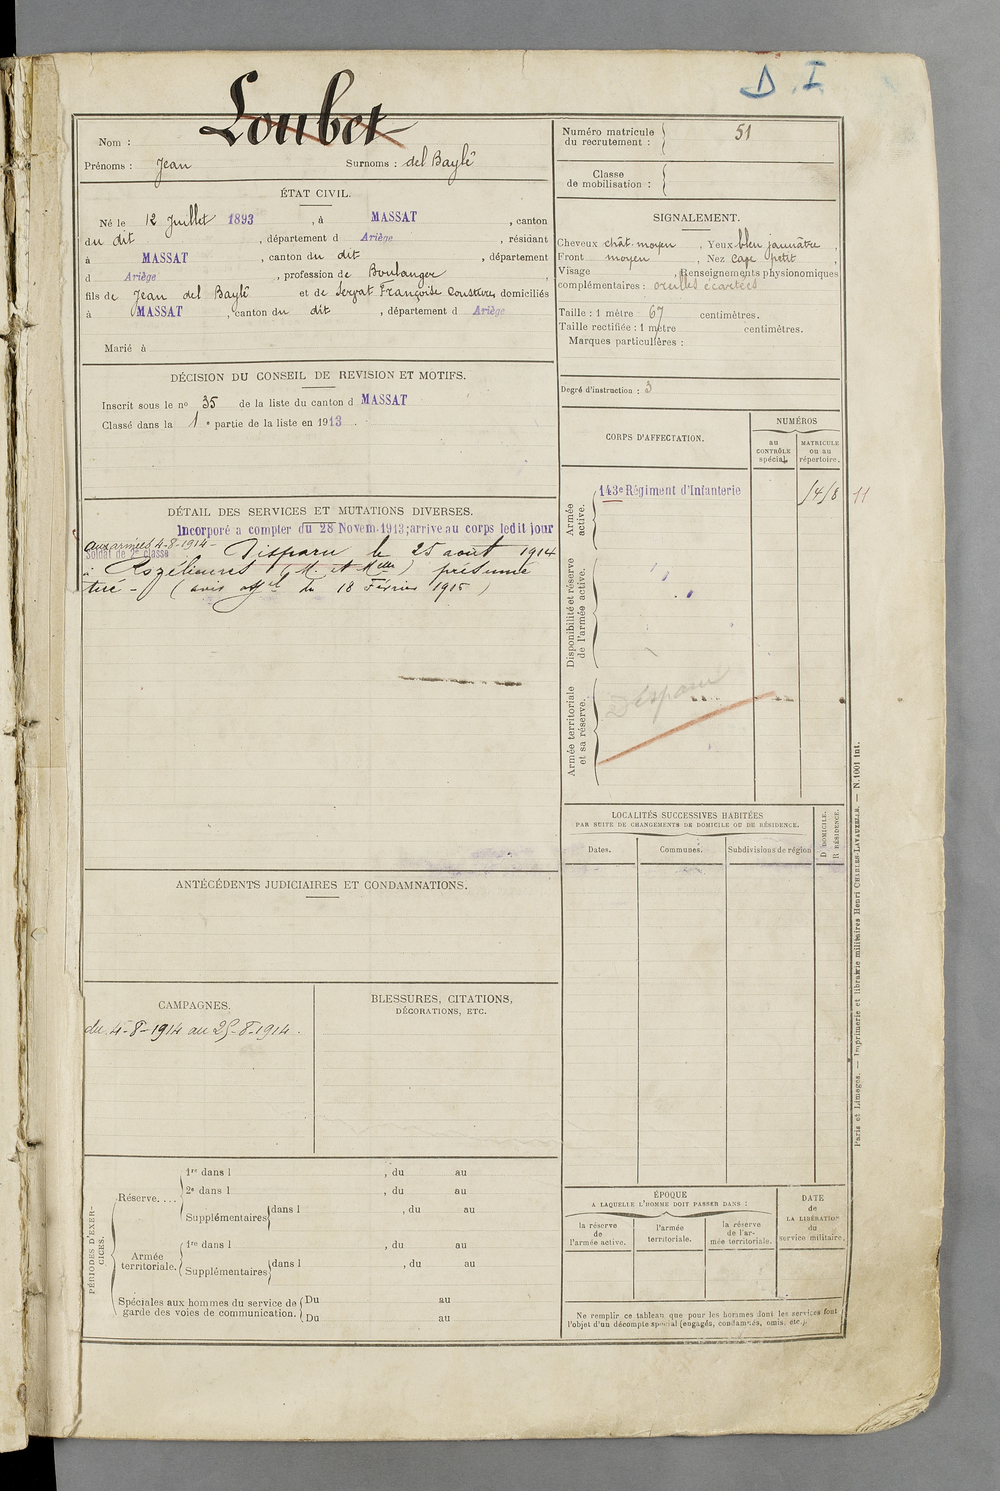 D. I
Loubet
Nom :
Prénoms : Jean Surnoms : del Baylé
Numéro matricule du recrutement : 51
Classe de mobilisation :
ÉTAT CIVIL.
Né le 12 Juillet 1893, à MASSAT, canton
du dit, département d Ariège, résidant
à MASSAT, canton du dit, département
d Ariège, profession de Boulanger
fils de Jean del Baylé et de Servat Françoise Consture, domiciliés
à MASSAT, canton du dit, département d Ariège
Marié à
SIGNALEMENT.
Cheveux chât. moyen, Yeux bleu jaunâtre,
Front moyen, Nez cave petit,
Visage , Renseignements physionomiques
complémentaires : oreilles écartées
Taille : 1 mètre 67 centimètres.
Taille rectifiée : 1 mètre centimètres.
Marques particulières :
Degré d'instruction : 3
DÉCISION DU CONSEIL DE REVISION ET MOTIFS.
Inscrit sous le nº 35 de la liste du canton d MASSAT
Classé dans la 1e partie de la liste en 1913.
CORPS D'AFFECTATION.
NUMÉROS
au CONTRÔLE spécial.
MATRICULE ou au répertoire.
Armée active.
143e Régiment d'Infanterie
1418 11
Disponibilité et réserve de l'armée active.
Armée territoriale et sa réserve.
Disparu
DÉTAIL DES SERVICES ET MUTATIONS DIVERSES.
Incorporé a compter du 28 Novem. 1913; arrive au corps ledit jour
aux armées 4-8-1914 -
Soldat de 2e classe Disparu le 25 août 1914
à Rozélieures (M. et Melle) présumé
tué - (avis offel du 18 Février 1915)
LOCALITÉS SUCCESSIVES HABITÉES
PAR SUITE DE CHANGEMENTS DE DOMICILE OU DE RÉSIDENCE.
Dates. Communes. Subdivisions de région
D DOMICILE.
R RÉSIDENCE.
ANTÉCÉDENTS JUDICIAIRES ET CONDAMNATIONS.
CAMPAGNES.
du 4-8-1914 au 25-8-1914.
BLESSURES, CITATIONS,
DÉCORATIONS, ETC.
PÉRIODES D'EXERCICES.
Réserve....
1re dans l , du au
2e dans l , du au
Supplémentaires dans l , du au
Armée territoriale.
1re dans l , du au
Supplémentaires dans l , du au
Spéciales aux hommes du service de garde des voies de communication.
Du au
Du au
ÉPOQUE
A LAQUELLE L'HOMME DOIT PASSER DANS :
la réserve de l'armée active.
l'armée territoriale.
la réserve de l'armée territoriale.
DATE de LA LIBÉRATION du service militaire.
Ne remplir ce tableau que pour les hommes dont les services font
l'objet d'un décompte spécial (engagés, condamnés, omis, etc.).
Paris et Limoges. — Imprimerie et librairie militaires Henri CHARLES-LAVAUZELLE. — N. 1001 int.